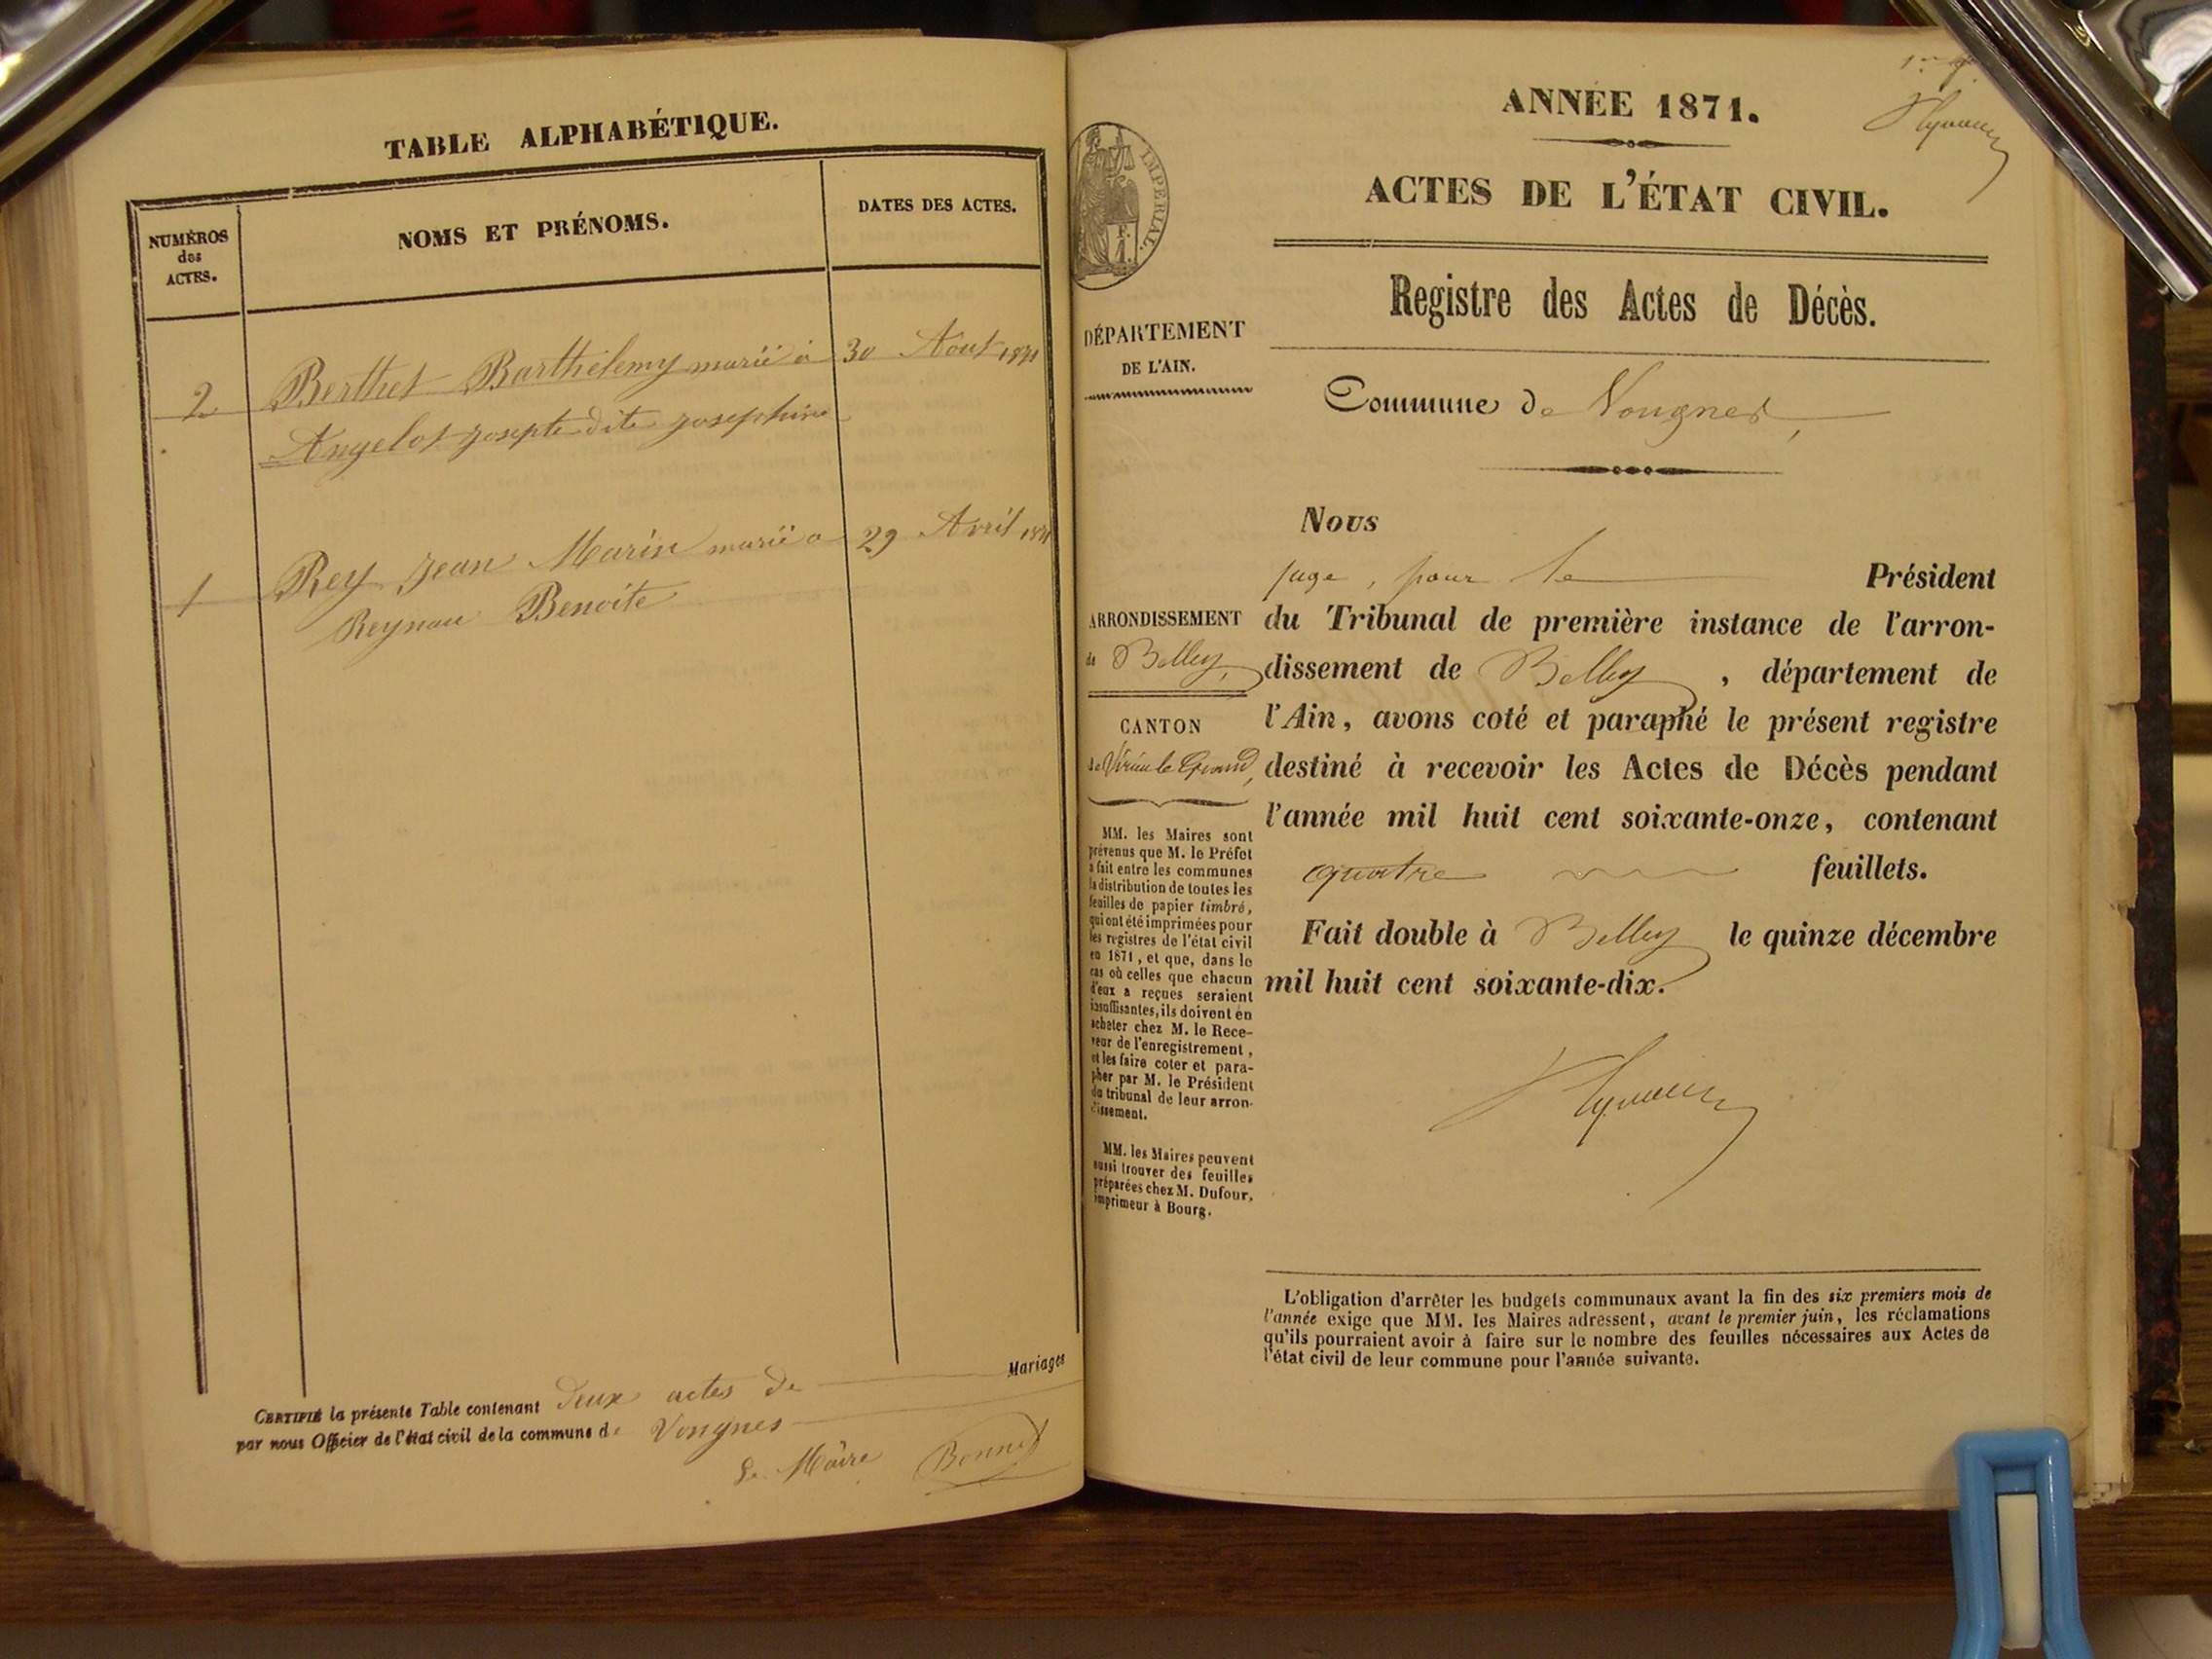 TABLE ALPHABÉTIQUE.
NUMÉROS
des
ACTES.
NOMS ET PRÉNOMS.
DATES DES ACTES.
2 Berthet Barthélemy marié à 30 Aout 1871
Angelot Josepte dite Josephine
1 Rey Jean Marin marié a 29 Avril 1871
Reynau Benoite
CERTIFIÉ la présente Table contenant deux actes de Mariages
par nous Officier de l'état civil de la commune de Vongnes
Le Maire Bonnet
IMPERIAL.
ANNÉE 1871.
ACTES DE L'ÉTAT CIVIL.
Registre des Actes de Décès.
DÉPARTEMENT
DE L'AIN.
Commune de Vongnes,
ARRONDISSEMENT
de Belley,
CANTON
de Virieu le Grand,
MM. les Maires sont
prévenus que M. le Préfet
a fait entre les communes
la distribution de toutes les
feuilles de papier timbré,
qui ont été imprimées pour
les registres de l'état civil
en 1871, et que, dans le
cas où celles que chacun
d'eux a reçues seraient
insuffisantes, ils doivent en
acheter chez M. le Rece-
veur de l'enregistrement,
et les faire coter et para-
pher par M. le Président
du tribunal de leur arron-
dissement.
MM. les Maires peuvent
aussi trouver des feuilles
préparées chez M. Dufour,
imprimeur à Bourg.
Nous
juge, pour le Président
du Tribunal de première instance de l'arron-
dissement de Belley, département de
l'Ain, avons coté et paraphé le présent registre
destiné à recevoir les Actes de Décès pendant
l'année mil huit cent soixante-onze, contenant
quatre feuillets.
Fait double à Belley le quinze décembre
mil huit cent soixante-dix.
L'obligation d'arrêter les budgets communaux avant la fin des six premiers mois de
l'année exige que MM. les Maires adressent, avant le premier juin, les réclamations
qu'ils pourraient avoir à faire sur le nombre des feuilles nécessaires aux Actes de
l'état civil de leur commune pour l'année suivante.